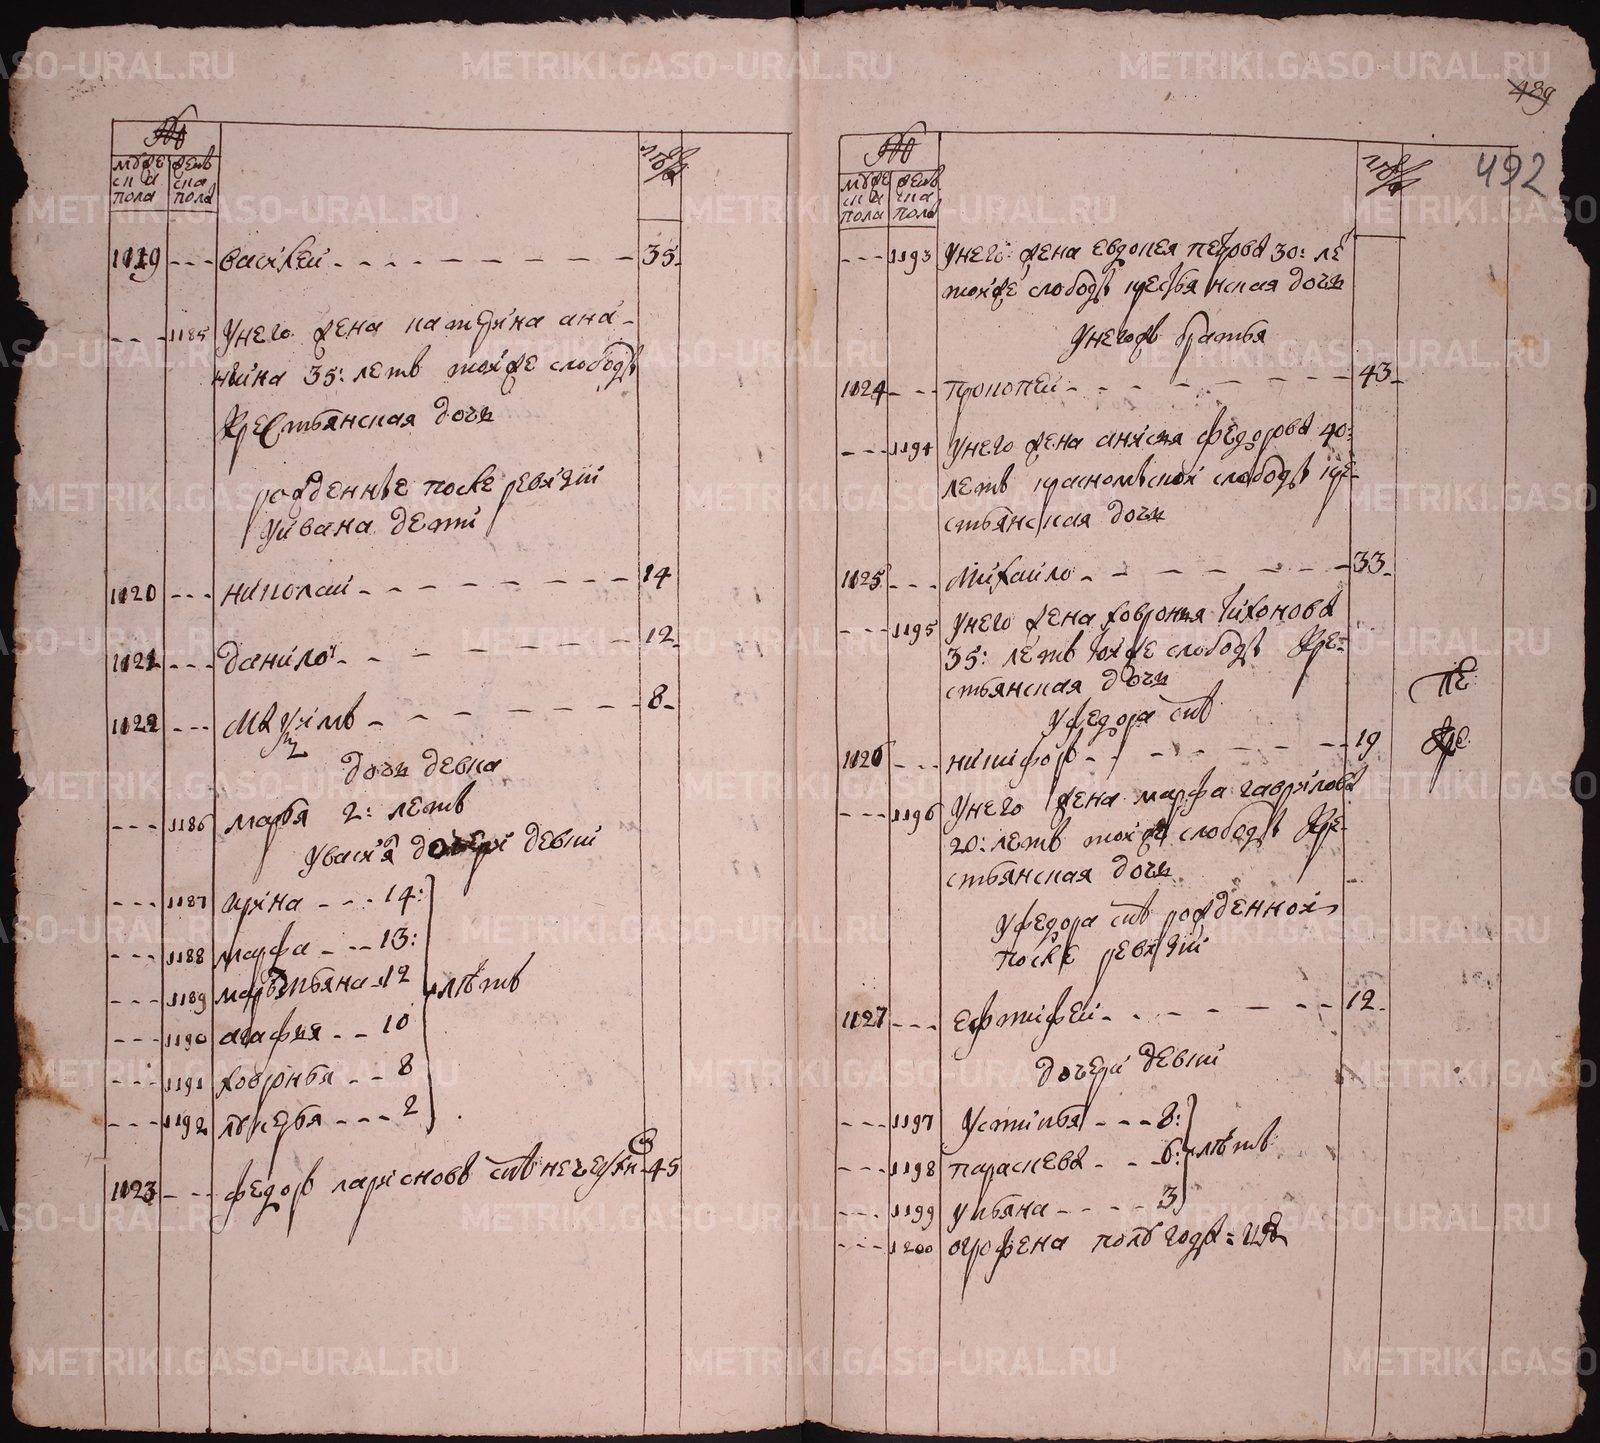 №
муже
ска
пола
женъ
ска
пола
лѣта
1119 --- василей - - - - 35
--- 1185 у него жена катерина ана-
ньина 35: летъ той же слободы
крестьянская дочь
рожденные после ревизии
у ивана дети
1120 --- николай - - - - 14
1121 --- данило - - - - 12
1122 --- - - - - 8
дочь девка
--- 1186 марья 2: летъ
у василья дочери девки
--- 1187 ирина - - - 14:
--- 1188 марфа - - - 13:
--- 1189 маремьяна - 12
летъ
--- 1190 агафия - - 10
--- 1191 ховронья - - 8
--- 1192 лукерья - - - 2
1123 --- федоръ ларионовъ сынъ - 45
489
492
№
муже
ска
пола
женъ
ска
пола
лѣта
--- 1193 у него жена евдокея петрова 30: ле
той же слободы крестьянская дочь
у него жъ братья
1124 --- прокопей - - - - 43
--- 1194 у него жена анисия федорова 40:
летъ слободы кре-
стьянская дочь
1125 --- михайло - - - - 33
--- 1195 у него жена ховрония тихонова
35: летъ той же слободы кре-
стьянская дочь
у федора сынъ
1126 --- никифоръ - - - - 19
--- 1196 у него жена марфа гаврилова
20: летъ той же слободы кре-
стьянская дочь
у федора сынъ рожденной
после ревизии
1127 --- ефтифей - - - - 12
дочери девки
--- 1197 устинья - - - 8:
--- 1198 параскева - - - 6:
летъ
--- 1199 ульяна - - - - 3
--- 1200 огрофена полу года
пе
кре
METRIKI.GASO-URAL.RU